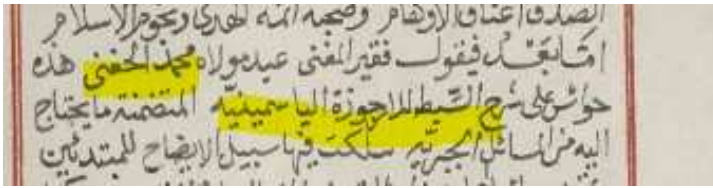 الصدق اعناق الاوهام وصحبه ائمه الهدى ونجوم الاسلام
اما بعد فيقول فقير المغنى عبد مولاه محمد الحفنى هذه
حواش على شرح السبط للارجوزة الياسمينيه المتضمنة ما يحتاج
اليه من المسائل الجبريه سلكت فيها سبيل الايضاح للمبتدئين